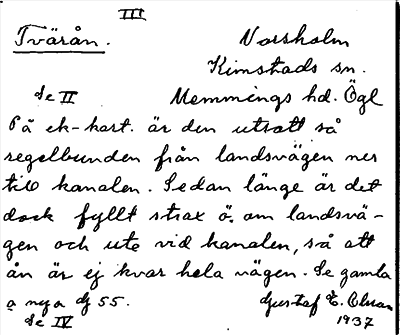 III
Tvärån. Norsholm
Kimstads sn.
Se II Memmings hd. Ögl
På ek-kart. är den utsatt så
regelbunden från landsvägen ner
till kanalen. Sedan länge är det
dock fyllt strax ö. om landsvä-
gen och ute vid kanalen, så att
ån är ej kvar hela vägen. Se gamla
o nya dj 55. Gustaf E. Olsson
Se IV 1937